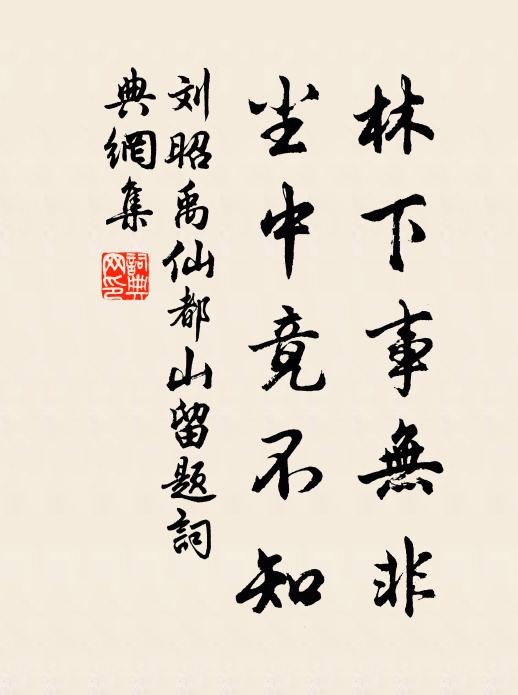 林下事無非
尘中竟不知
刘昭禹仙都山留题詞
典網集
詞典
网印